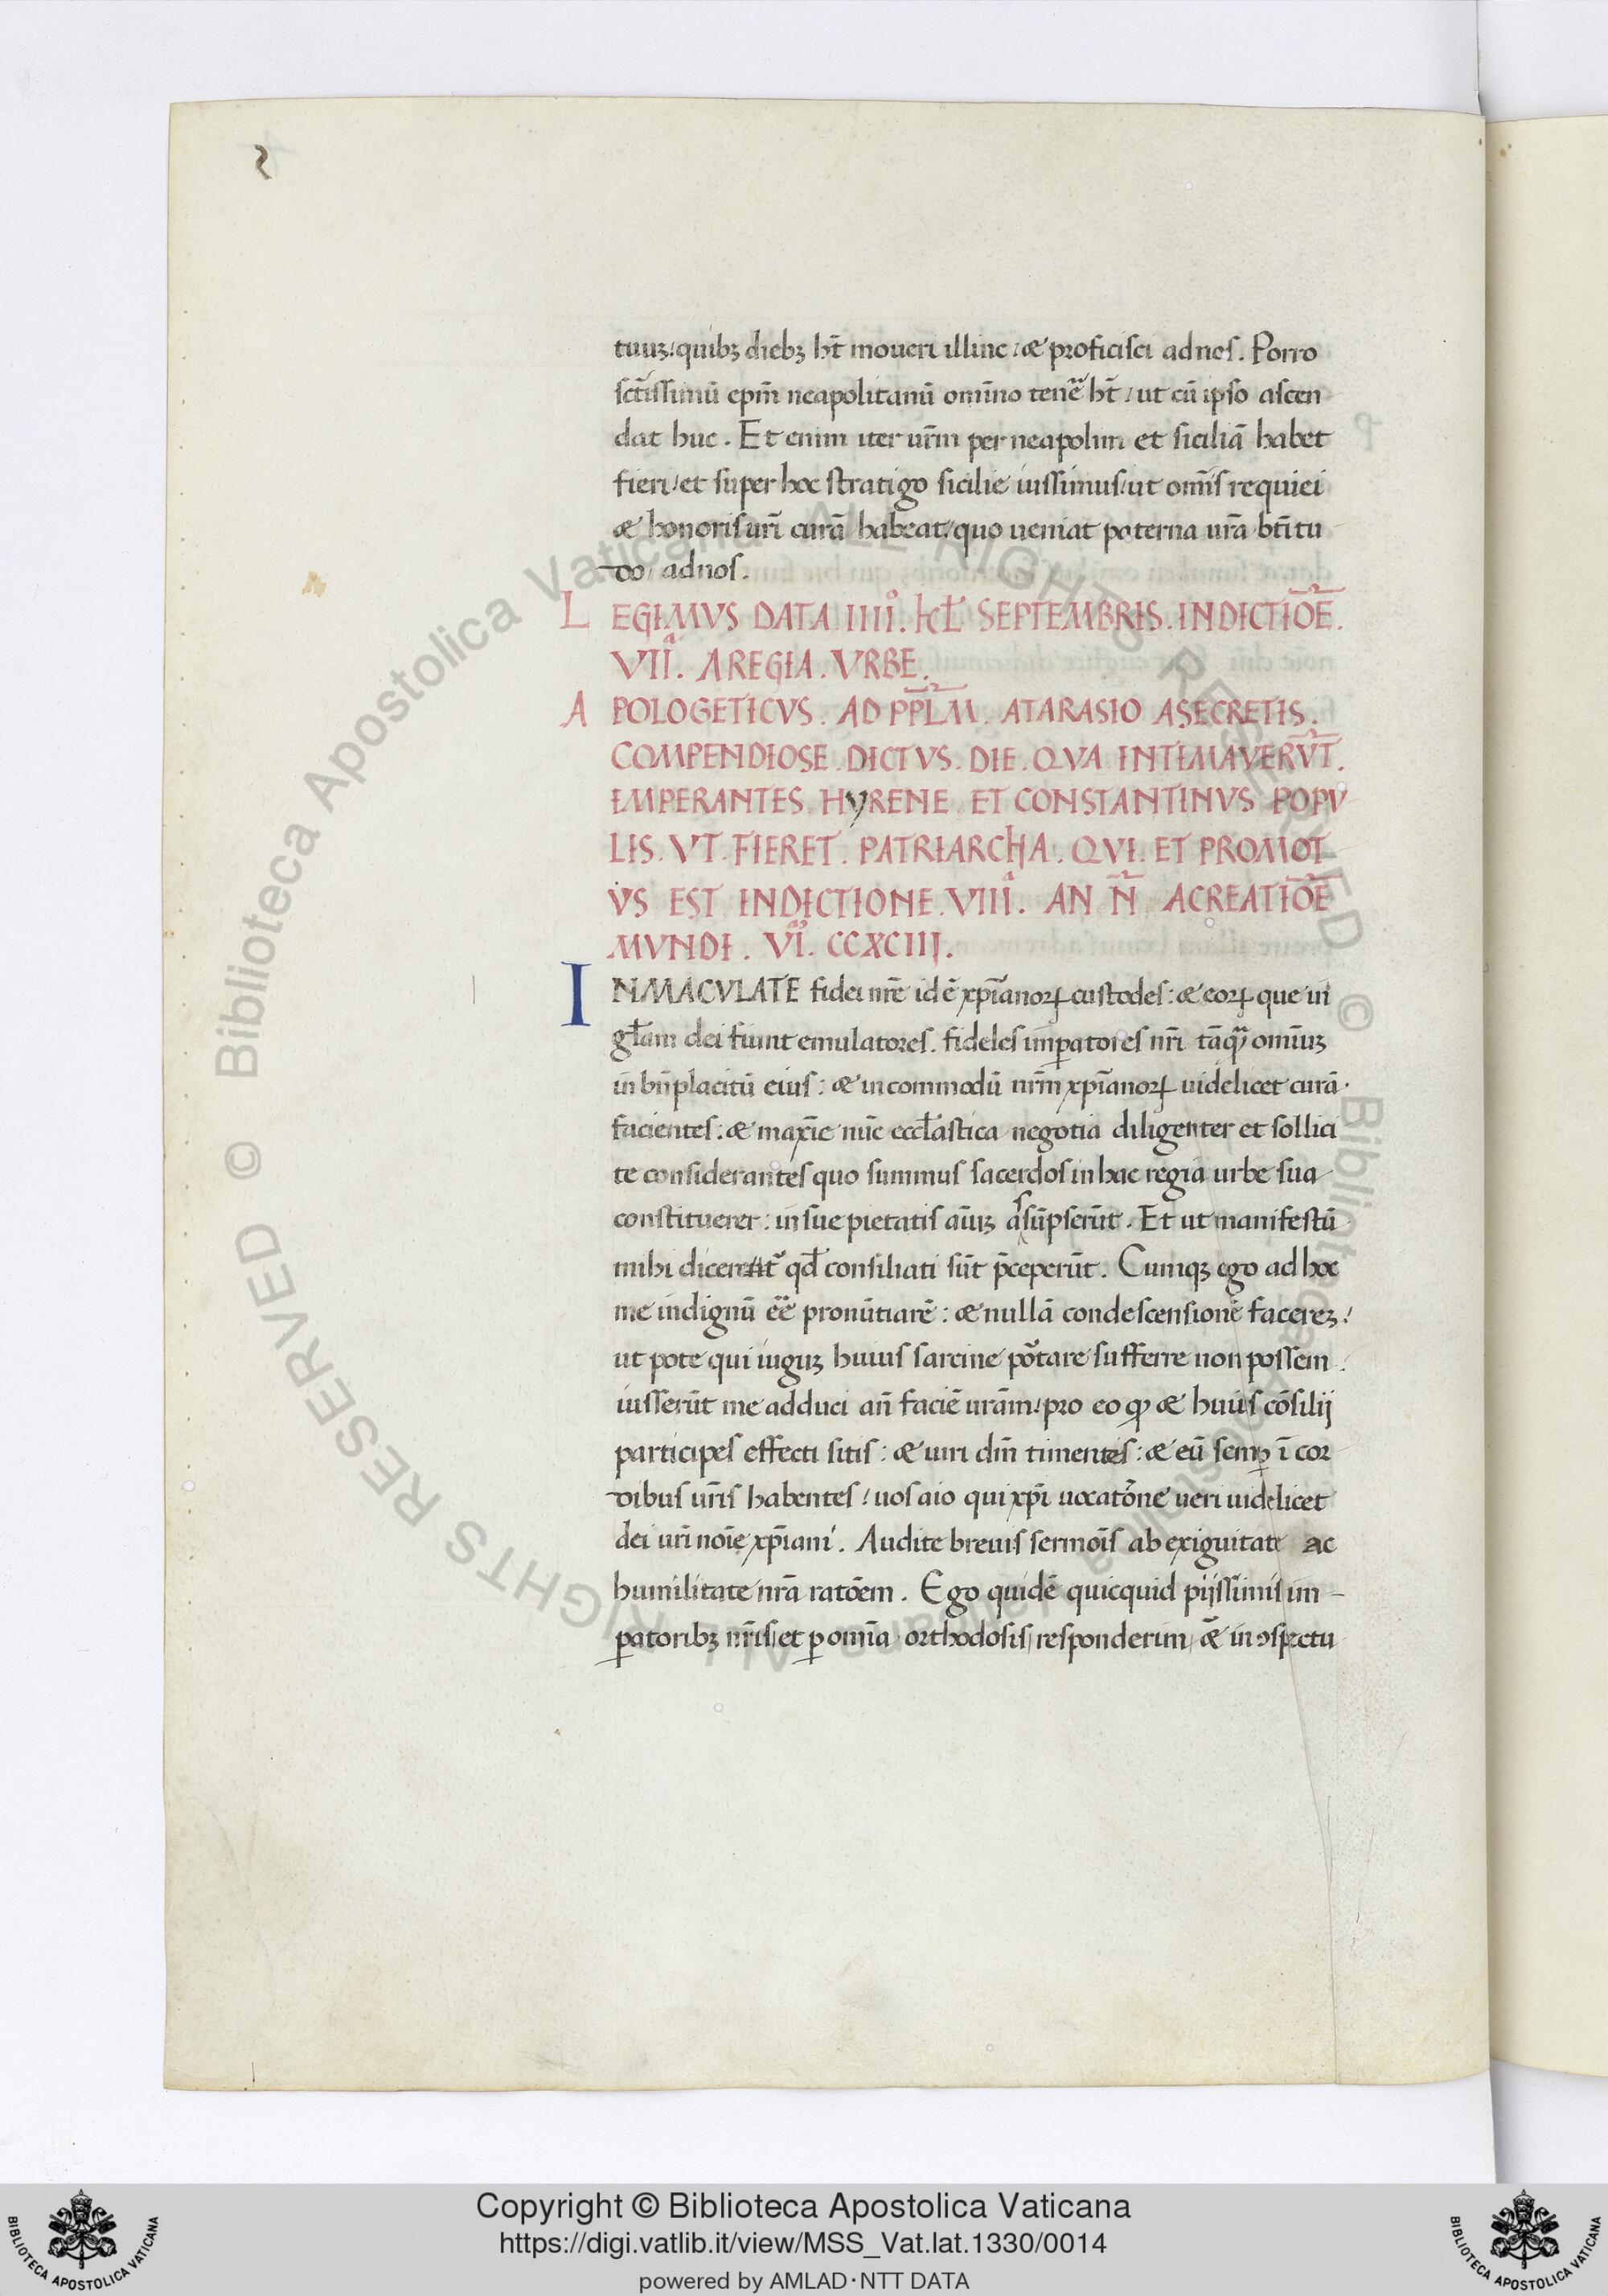 tuuꝫ/ quibꝫ diebꝫ ht̄ moueri illinc: æ proficisci ad nos. Porro
sct̄issimū epm̄ neapolitanū omīno tenē ht̄: ut cū ipso ascen
dat huc. Et enim iter urm̄ per neapolim et siciliā habet
fieri/ et super hoc stratigo sicilie iussimus/ ut omīs requiei
æ honoris urī curā habeat/ quo ueniat paterna urā btītu
do/ ad nos.
LEGIMVS DATA IIIIº. KL̄ SEPTEMBRIS. INDICTIŌE.
VIIª. A REGIA. VRBE.
APOLOGETICVS. AD PP̄LM. ATARASIO ASECRETIS.
COMPENDIOSE. DICTVS. DIE. QVA INTIMAVERV̄T.
IMPERANTES. HYRENE. ET CONSTANTINVS POPV
LIS. VT. FIERET. PATRIARCHA. QVI. ET PROMOT
VS EST INDICTIONE. VIIIª. AN N̄ ACREATIŌE
MVNDI. VI. CCXCIIJ.
INMACVLATE fidei nrē id ē xpīanoꝝ custodes: æ eoꝝ que in
gl̄am dei fiunt emulatores. fideles imꝑatores nrī tāqͣ omīuꝫ
in bn̄placitū eius: æ in commodū nrm̄ xpīanoꝝ uidelicet curā.
facientes: æ maxīe nūc eccl̄astica negotia diligenter et sollici
te considerantes quo summus sacerdos in hac regia urbe sua
constituerer: in sue pietatis aīuꝫ assūpserūt. Et ut manifestū
mihi dicerent qd̄ consiliati sūt p̄ceperūt. Cumqꝫ ego ad hoc
me indignū eē pronūtiarē: æ nullā condescensionē facereꝫ/
ut pote qui iuguꝫ huius sarcine portare sufferre non possem.
iusserūt me adduci an̄ faciē urām/ pro eo qꝫ æ huius cōsilij
participes effecti sitis: æ uiri dm̄ timentes: æ eū semꝑ ī cor
dibus urīs habentes/ uos aio qui xpī uocatōne ueri uidelicet
dei urī noīe xpīani. Audite breuis sermoīs ab exiguitate ac
humilitate nrā ratōem. Ego quidē quicquid pijssimis im-
ꝑatoribꝫ nrīs/ et ꝑ omīa orthodosis/ responderim/ æ in ↄspectu
Copyright © Biblioteca Apostolica Vaticana
https://digi.vatlib.it/view/MSS_Vat.lat.1330/0014
powered by AMLAD·NTT DATA